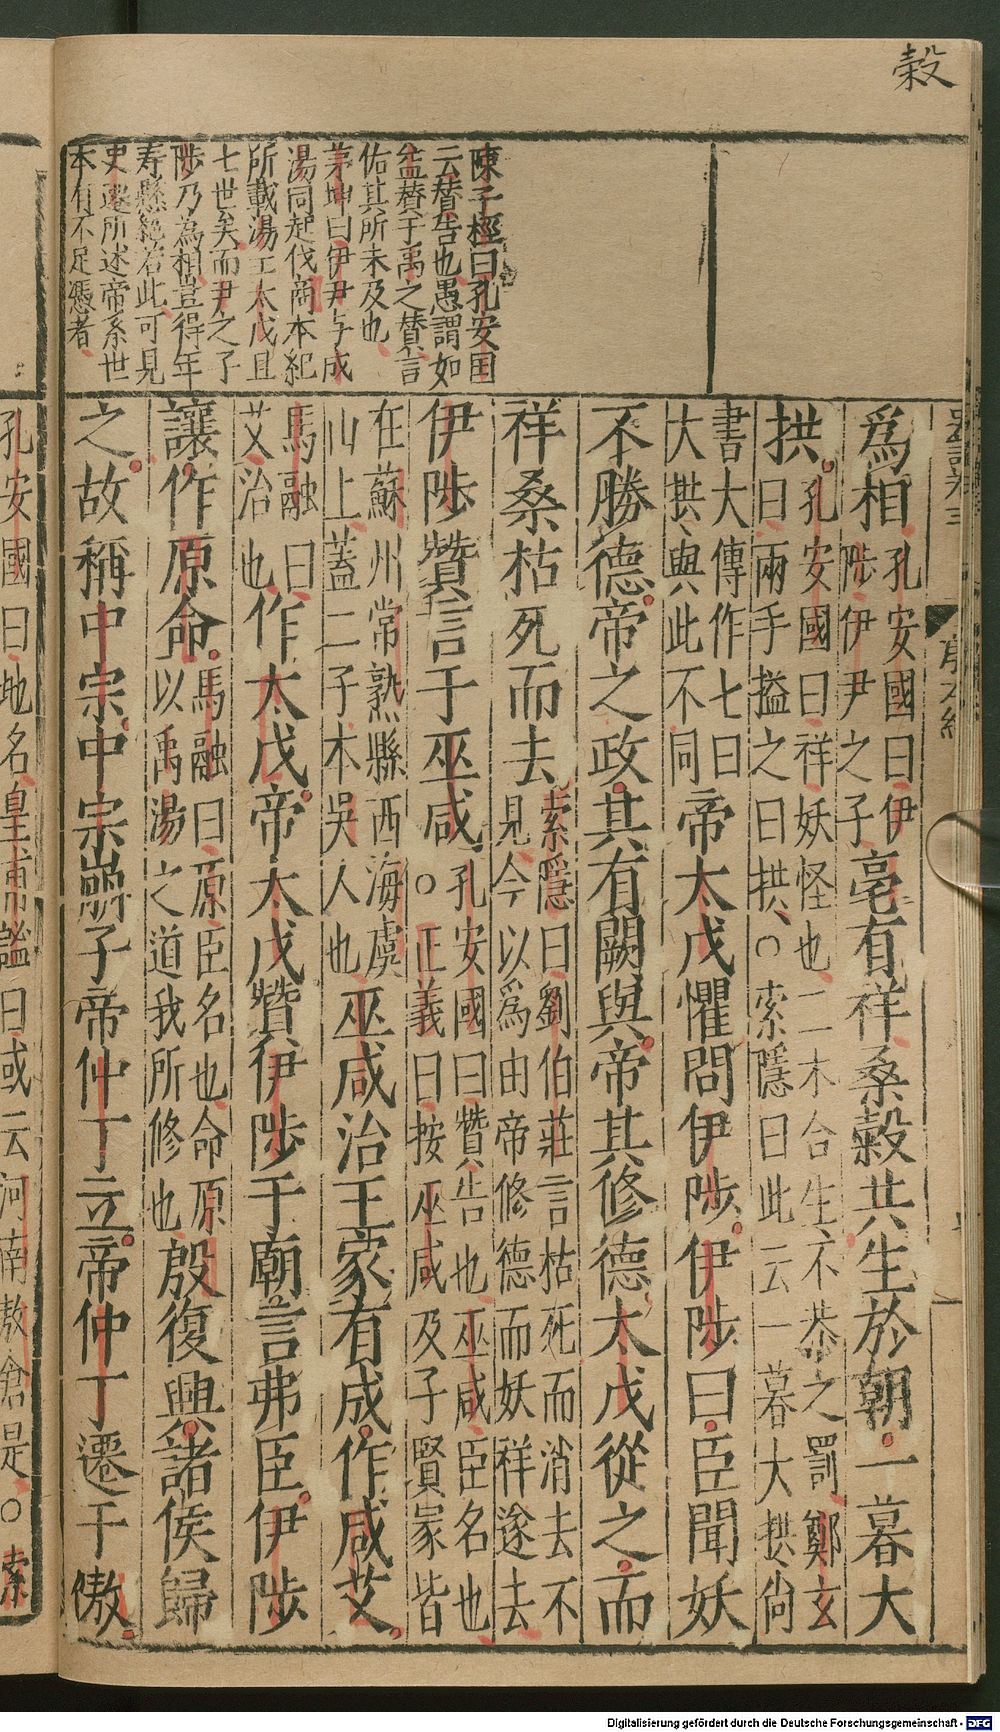 榖
史記卷三
殷本紀
陳子桱曰孔安国
云賛告也愚謂如
益賛于禹之賛言
佑其所未及也
茅坤曰伊尹与成
湯同起伐商本紀
所載湯王太戊且
七世矣而尹之子
陟乃為相豈得年
寿懸絶若此可見
史遷所述帝系世
本有不足憑者
爲相孔安國曰伊
陟伊尹之子亳有祥桑榖共生於朝一暮大
拱孔安國曰祥妖怪也二木合生不恭之罰鄭玄
曰兩手搤之曰拱○索隱曰此云一暮大拱尚
書大傳作七曰
大拱與此不同帝太戊懼問伊陟伊陟曰臣聞妖
不勝德帝之政其有闕與帝其修德太戊從之而
祥桑枯死而去索隱曰劉伯莊言枯死而消去不
見今以爲由帝修德而妖祥遂去
伊陟贊言于巫咸孔安國曰贊告也巫咸臣名也
○正義曰按巫咸及子賢冢皆
在蘇州常熟縣西海虞
山上蓋二子本吳人也巫咸治王家有成作咸艾
馬融曰
艾治也作太戊帝太戊贊伊陟于廟言弗臣伊陟
讓作原命馬融曰原臣名也命原
以禹湯之道我所修也殷復興諸侯歸
之故稱中宗中宗崩子帝仲丁立帝仲丁遷于隞
孔安國曰地名皇甫謐曰或云河南敖倉是○索